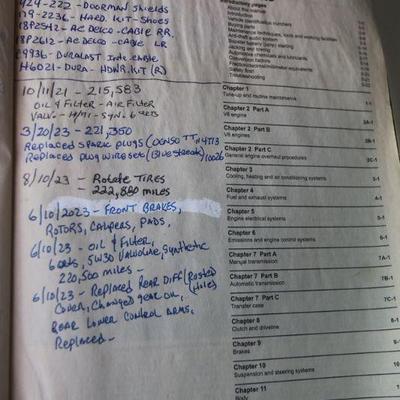 424-222 - DOORMAN Shields
19-2236 - HARD. KIT - Shoes
18P2542 - AC DELCO - CABLE RR.
18P2612 - AC DELCO - CABLE LR
C9936 - DURALAST Int. CABLE
H6021 - DURA - HDWR. KIT (R)
10/11/21 - 215,583
OIL & FILTER - AIR FILTER
VALV - H/M - SYN.
3/20/23 - 221,350
Replaced SPARK plugs
Replaced plug wire set (Blue streak)
8/10/23 - Rotate TIRES
- 222,880 miles
6/10/2023 - FRONT BRAKES,
ROTORS, CALIPERS, PADS,
6/10/23 - OIL & Filter,
6 qts, 5W30 VALVOLINE, Synthetic
220,500 miles -
6/10/23 - Replaced REAR Diff (Rusted
COVER, Changed gear OIL, (Hole)
REAR Lower CONTROL ARMS,
Replaced -
Introductory pages
About this manual
Introduction
Vehicle identification numbers
Buying parts
Maintenance techniques, tools and working facilities
Anti-theft audio system
Booster battery (jump) starting
Jacking and towing
Automotive chemicals and lubricants
Conversion factors
Fraction/decimal/millimeter equivalents
Safety first!
Troubleshooting
Chapter 1
Tune-up and routine maintenance
1-1
Chapter 2 Part A
V6 engine
2A-1
Chapter 2 Part B
V8 engines
2B-1
Chapter 2 Part C
General engine overhaul procedures
2C-1
Chapter 3
Cooling, heating and air conditioning systems
3-1
Chapter 4
Fuel and exhaust systems
4-1
Chapter 5
Engine electrical systems
5-1
Chapter 6
Emissions and engine control systems
6-1
Chapter 7 Part A
Manual transmission
7A-1
Chapter 7 Part B
Automatic transmission
7B-1
Chapter 7 Part C
Transfer case
7C-1
Chapter 8
Clutch and driveline
8-1
Chapter 9
Brakes
9-1
Chapter 10
Suspension and steering systems
10-1
Chapter 11
Body